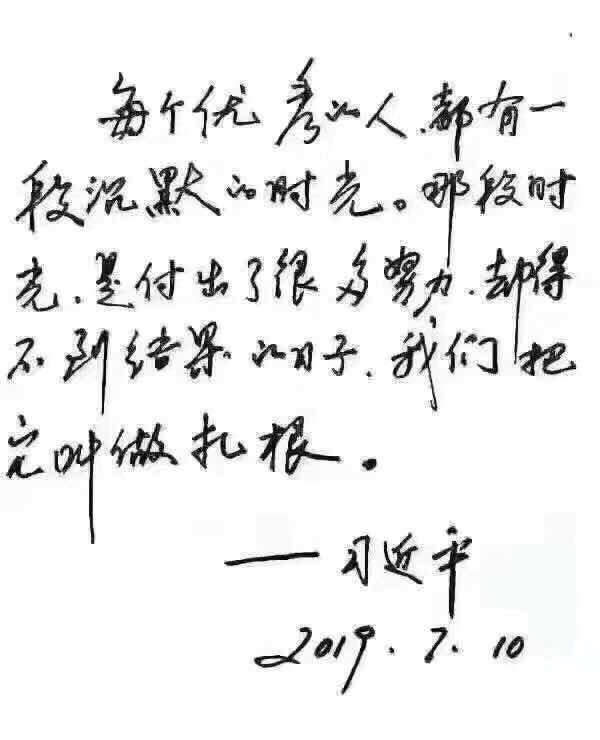 每个优秀的人.都有一
段沉默的时光。那段时
光.是付出了很多努力.却得
不到结果的日子.我们把
它叫做扎根。
——习近平
2019.7.10